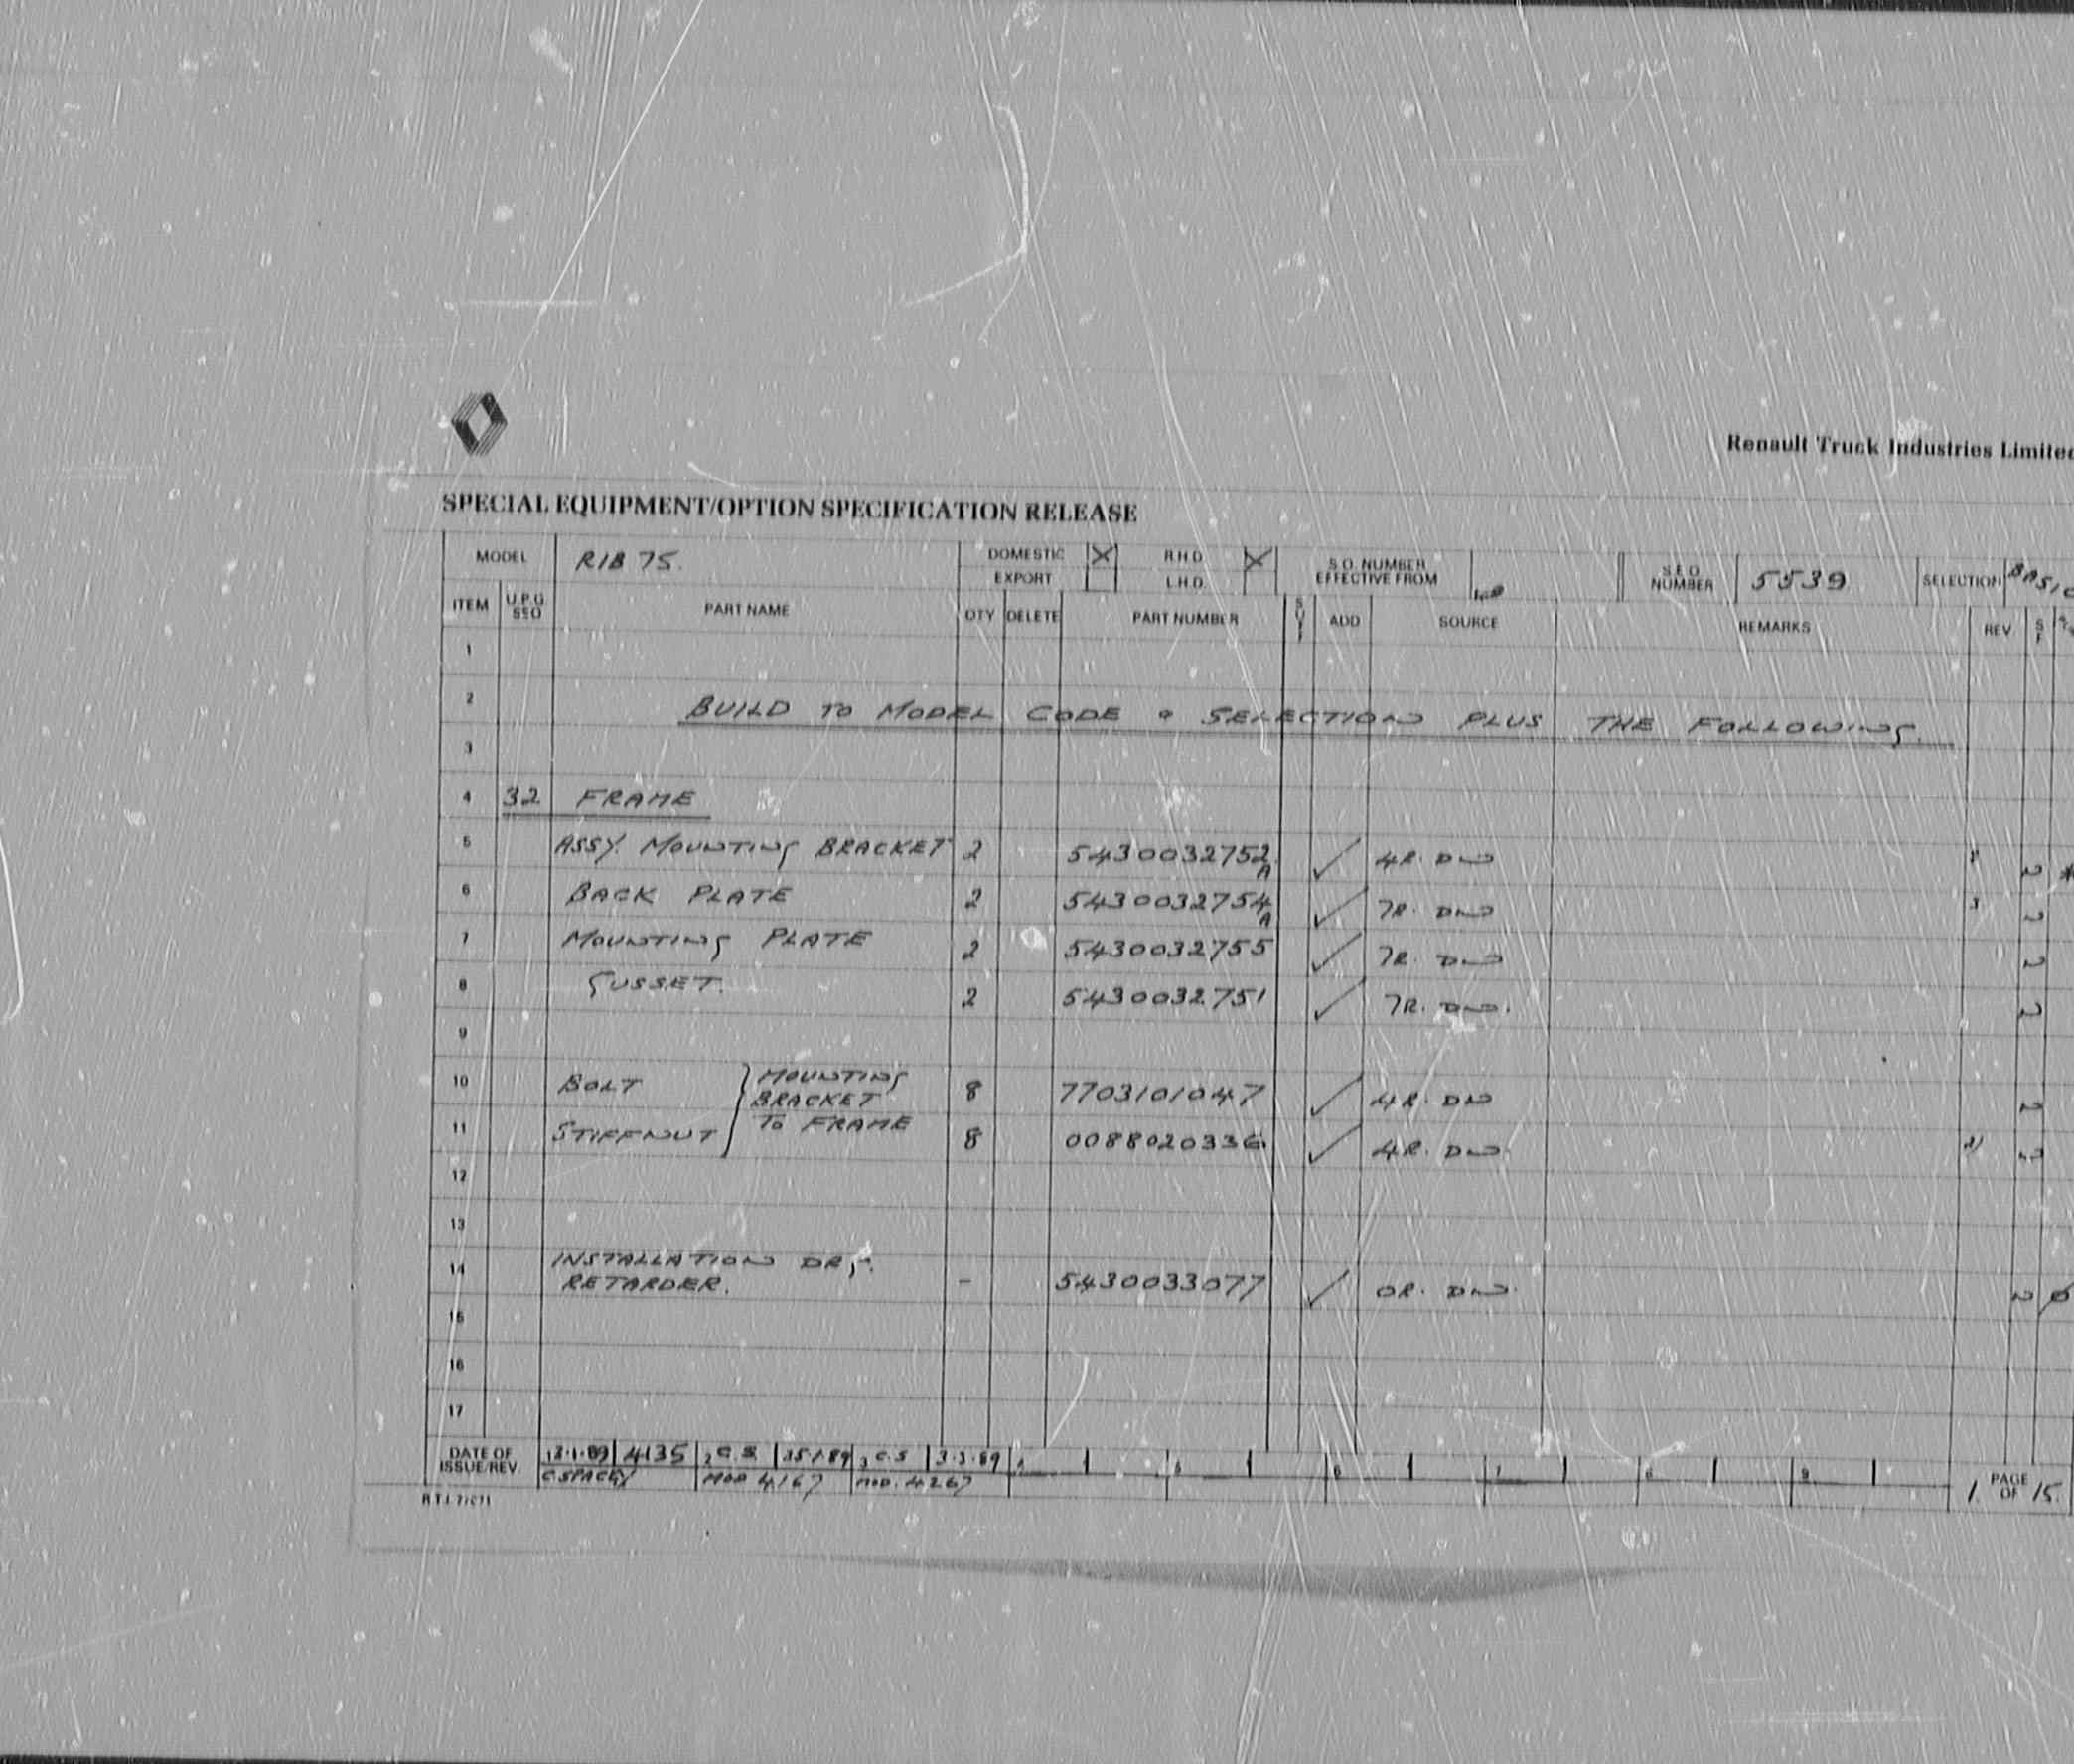 Renault Truck Industries Limited
SPECIAL EQUIPMENT/OPTION SPECIFICATION RELEASE
MODEL RIB 75. DOMESTIC X R.H.D. X S.O. NUMBER EFFECTIVE FROM S.E.O. NUMBER 5539. SELECTION BASIC
EXPORT L.H.D.
ITEM U.P.G. PART NAME QTY DELETE PART NUMBER ADD SOURCE REMARKS REV
1
2 BUILD TO MODEL CODE & SELECTION PLUS THE FOLLOWING.
3
4 32 FRAME
5 ASSY. MOUNTING BRACKET 2 5430032752 A ✓ 4R. DW
6 BACK PLATE 2 5430032754 A ✓ 7R. DW 3 2
7 MOUNTING PLATE 2 5430032755 ✓ 7R. DW 2
8 GUSSET. 2 5430032751 ✓ 7R. DW. 2
9
10 BOLT } MOUNTING BRACKET TO FRAME 8 7703101047 ✓ 4R. DW 2
11 STIFFNUT 8 0088020336 ✓ 4R. DW. 2
12
13
14 INSTALLATION DRG.
RETARDER. - 5430033077 ✓ OR. DW. 2
15
16
17
DATE OF ISSUE/REV. 4135 2 C.S 25.1.89 3 C.S 3.3.89 4 5 6 7 8 9
C. SPACEY MOD 4167 MOD. 4267
1. PAGE OF 15.